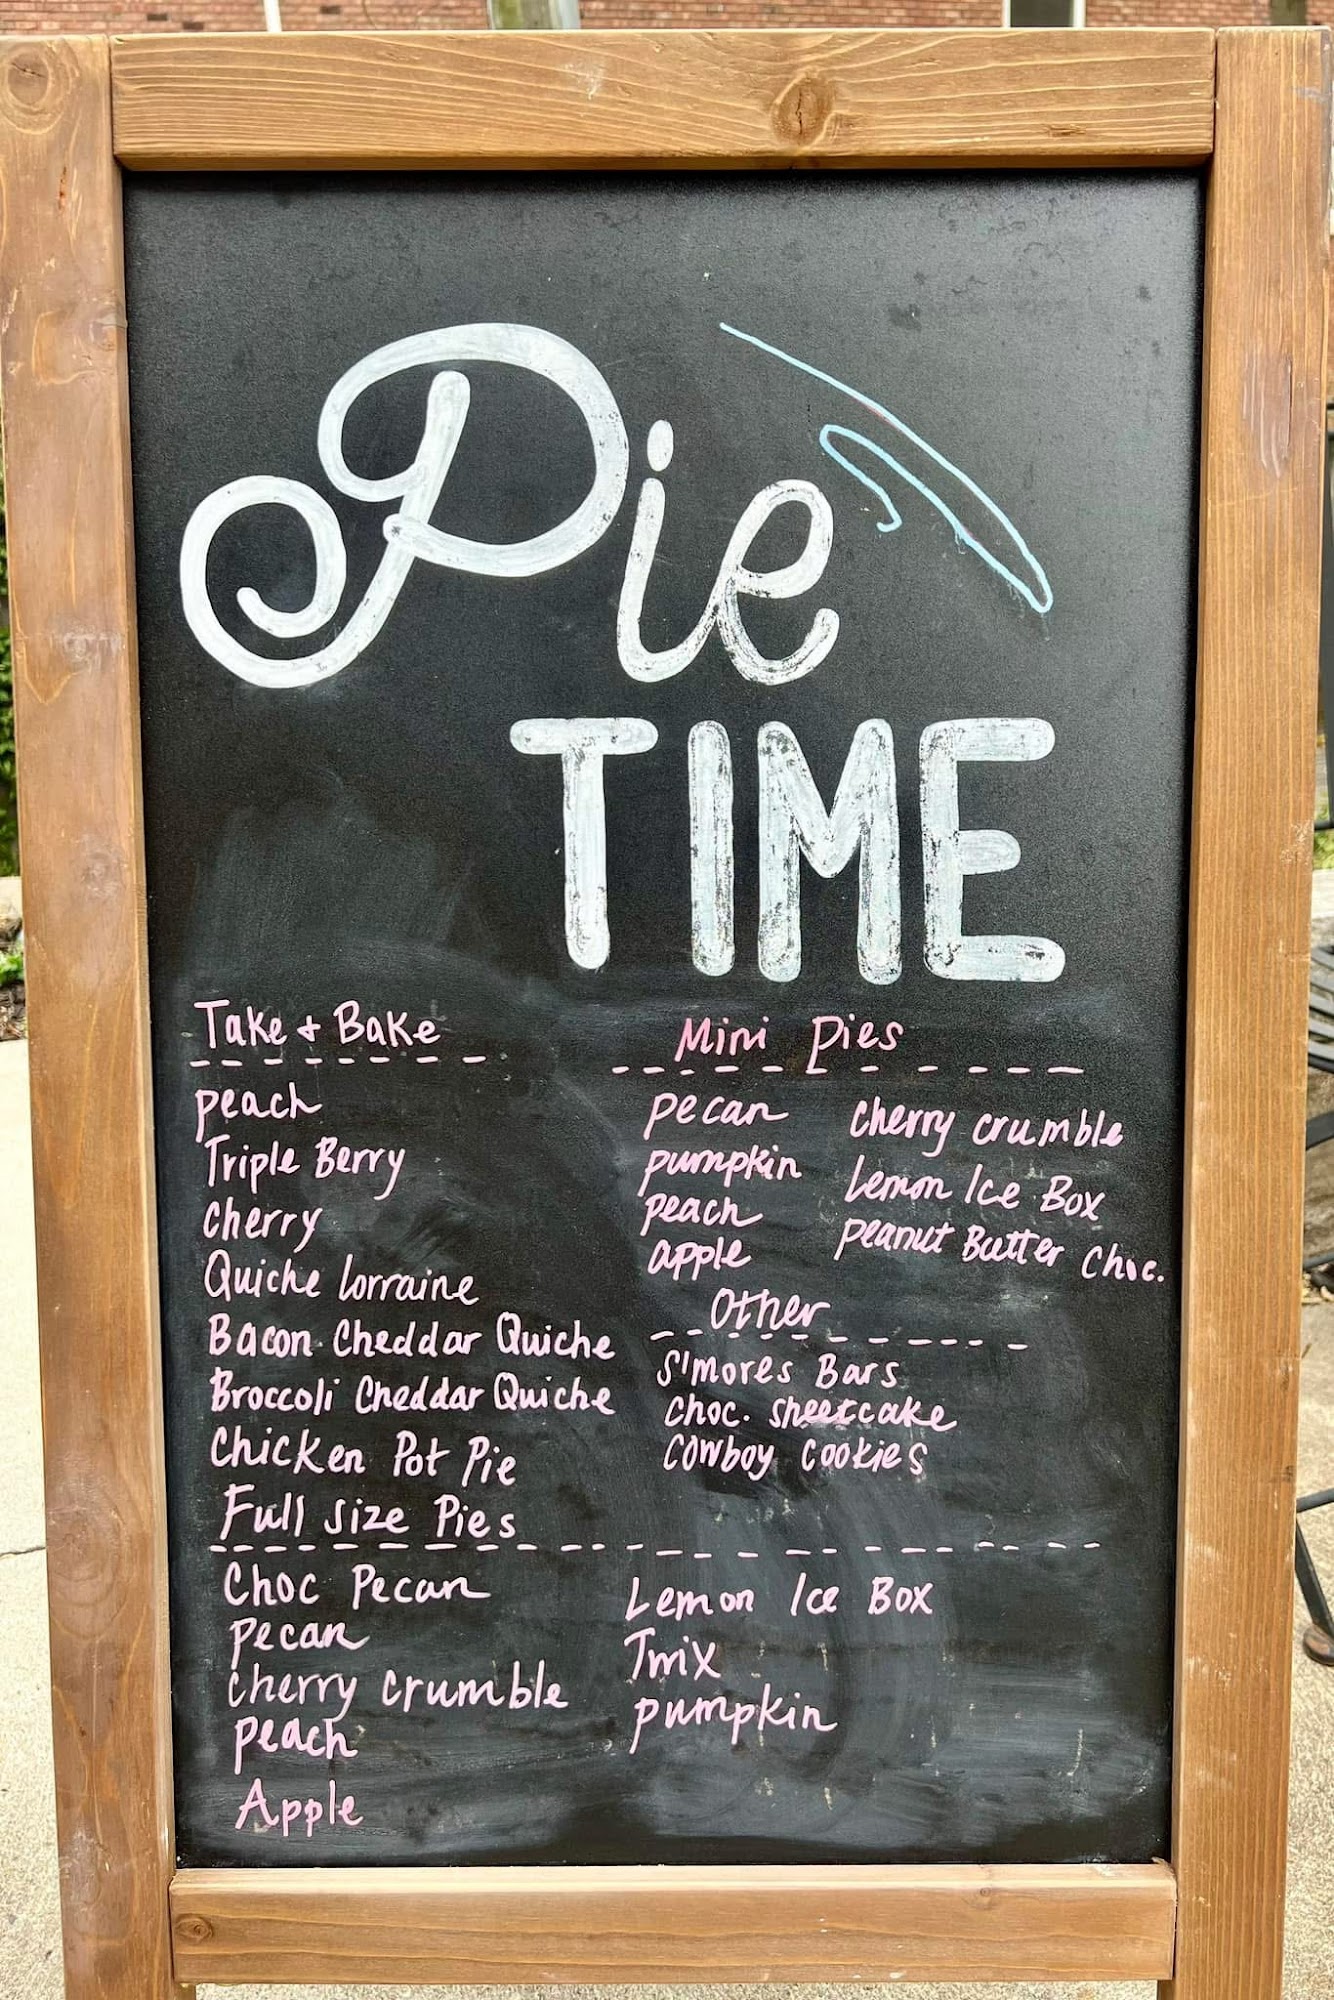 Pie
TIME
Take + Bake
peach
Triple Berry
cherry
Quiche Lorraine
Bacon Cheddar Quiche
Broccoli Cheddar Quiche
Chicken Pot Pie
Mini Pies
pecan
pumpkin
peach
apple
cherry crumble
Lemon Ice Box
Peanut Butter Choc.
Other
S'mores Bars
choc. sheetcake
cowboy cookies
Full Size Pies
Choc Pecan
Pecan
cherry crumble
peach
Apple
Lemon Ice Box
Twix
pumpkin